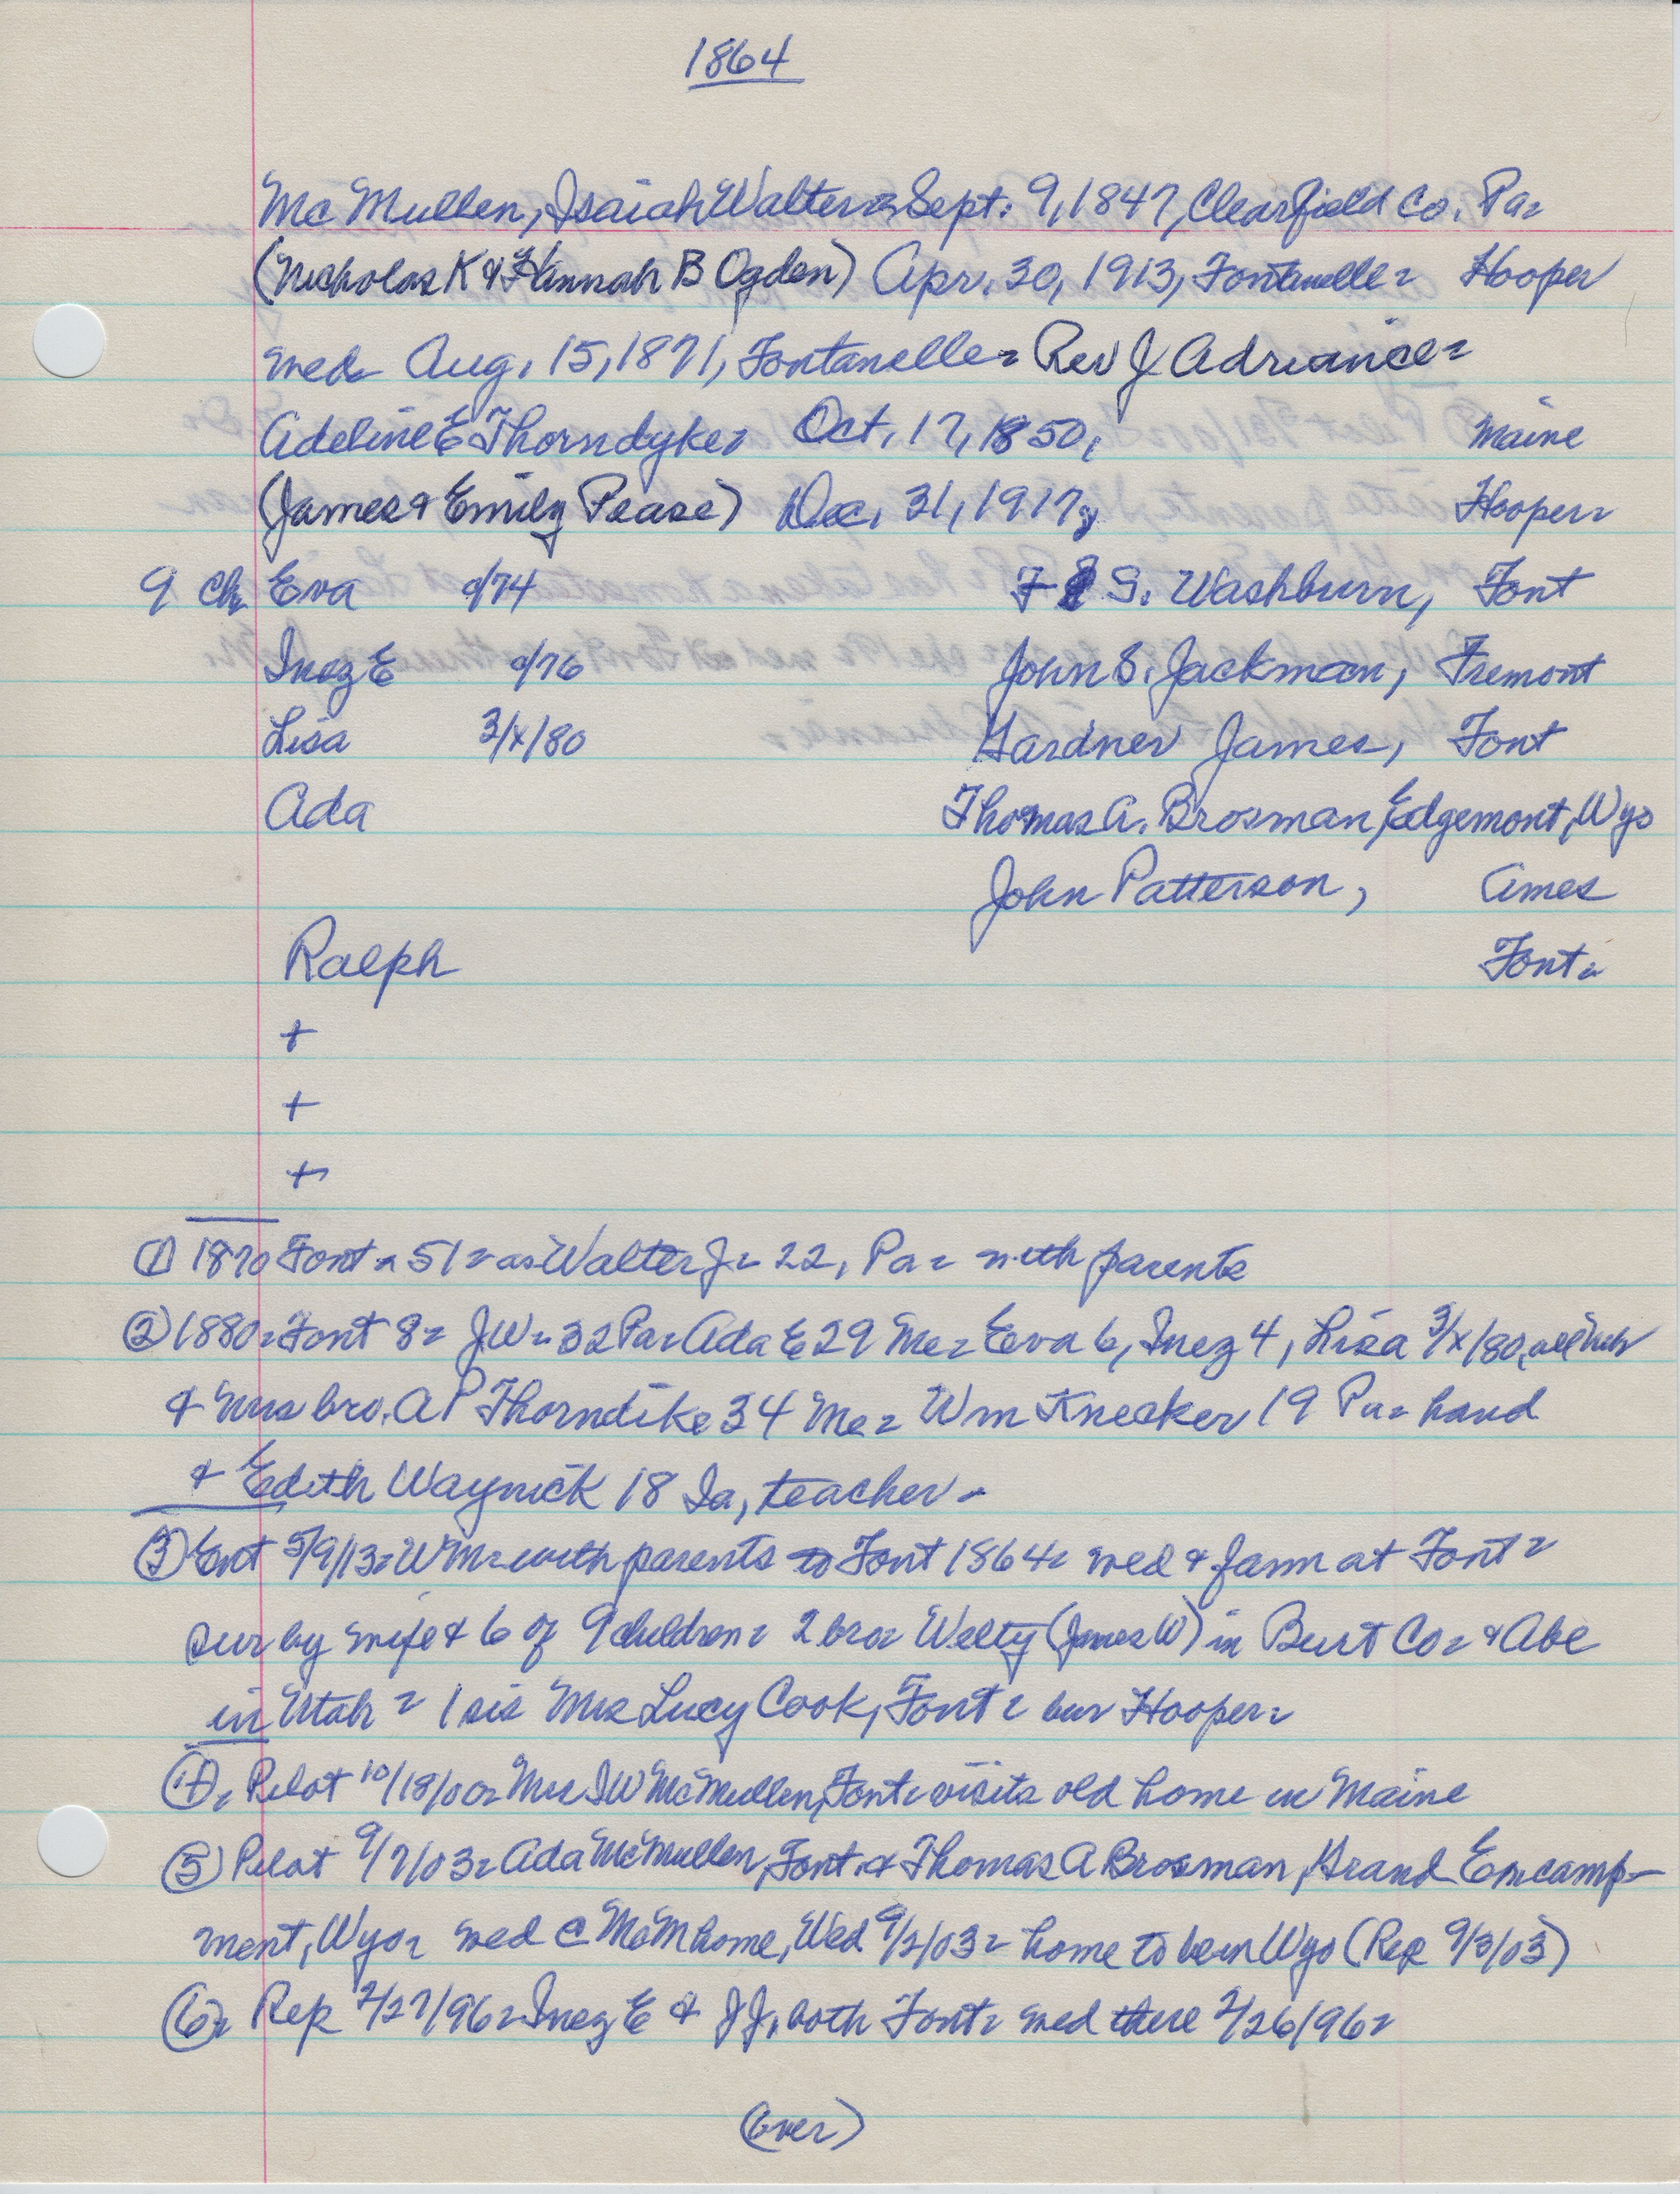 1864
McMullen, Isaiah Walter - Sept. 9, 1847, Clearfield Co. Pa -
(Nicholas K & Hannah B Ogden) Apr. 30, 1913, Fontanelle - Hooper
med - Aug. 15, 1871, Fontanelle - Rev J Adriance -
Adeline E Thorndyke - Oct. 17, 1850, Maine
(James & Emily Pease) Dec. 31, 1917, Hooper -
9 Ch - Eva c/74 F S. Washburn, Font
Inez E c/76 John S. Jackman, Fremont
Lisa 3/x/80 Gardner James, Font
Ada Thomas A. Brosman, Edgemont, Wyo
John Patterson, Ames
Ralph Font -
+
+
+
① 1870 Font - 51 - as Walter J - 22, Pa - with parents
② 1880 - Font 8 - JW - 32 Pa - Ada E 29 Me - Eva 6, Inez 4, Lisa 3/x/80, all Neb
& bro. A P Thorndike 34 Me - Wm Knecker 19 Pa - hand
& Edith Waynick 18 Ia, teacher -
③ Ent 5/9/13 - WM - with parents to Font 1864 - med & farm at Font -
sur by wife & 6 of 9 children - 2 bro - Welty (James W) in Burt Co - & Abe
in Utah - 1 sis Mrs Lucy Cook, Font - bur Hooper -
④ - Pilot 10/18/00 - Mrs IW McMullen, Font - visits old home in Maine
⑤ Pilot 9/7/03 - Ada McMullen, Font. & Thomas A Brosman, Grand Emcamp-
ment, Wyo - med @ McM home, Wed 9/2/03 - home to be in Wyo (Rep 9/3/03)
⑥ - Rep 2/27/96 - Inez E & JJ, both Font - med there 2/26/96 -
(over)